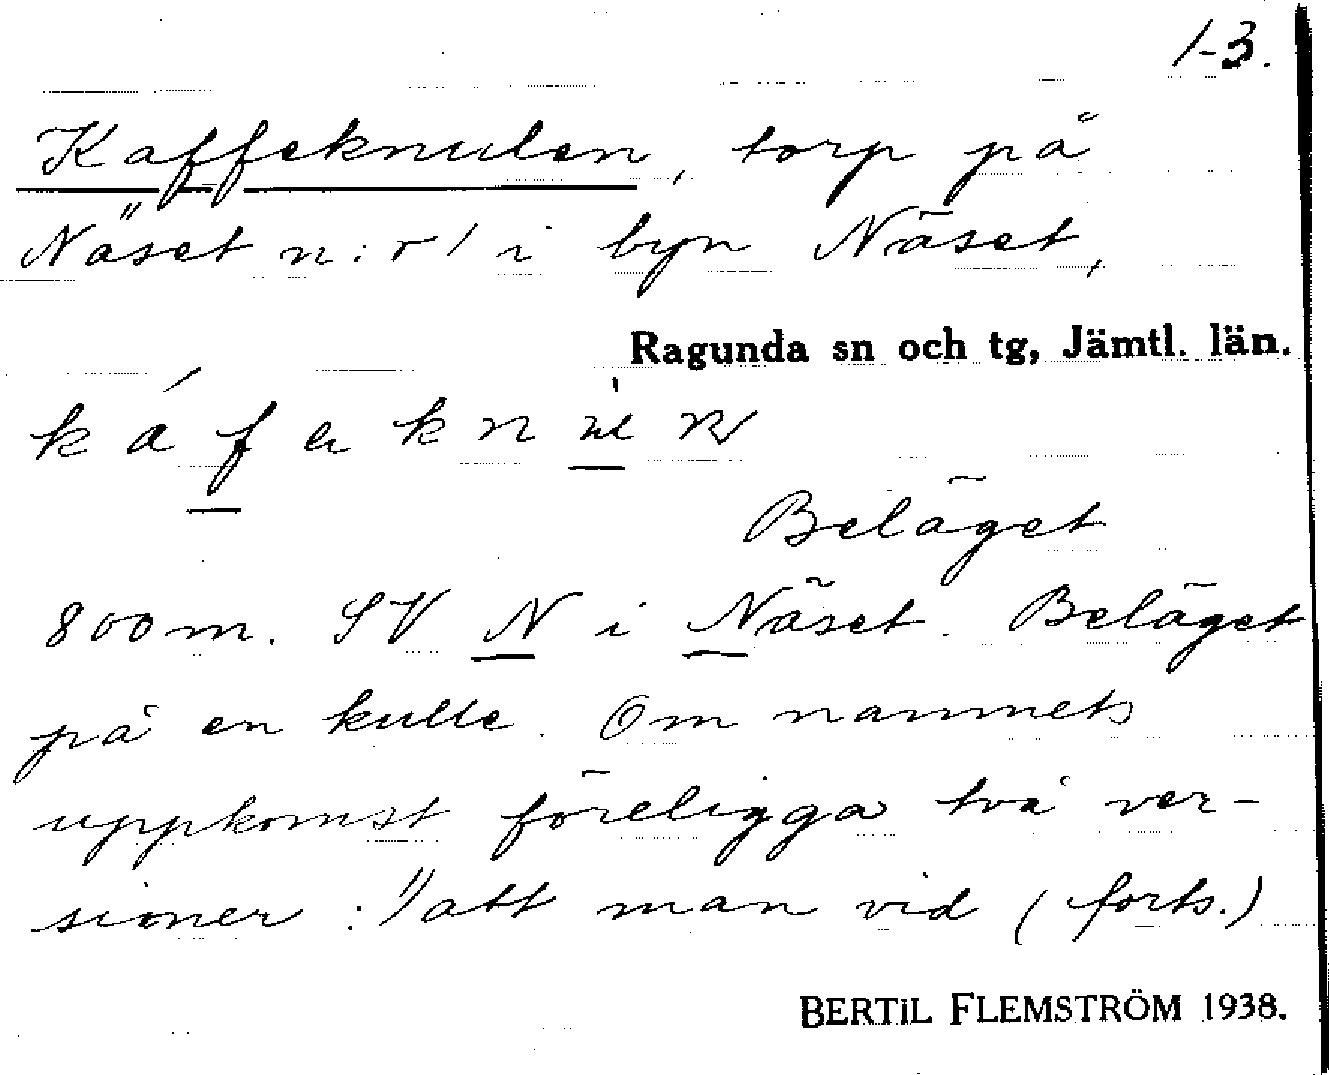 1-3.
Kaffeknulen, torp på
Näset n:r 1 i byn Näset,
Ragunda sn och tg, Jämtl. län.
Beläget
800 m. SV N i Näset. Beläget
på en kulle. Om namnets
uppkomst föreligga två ver-
sioner: 1) att man vid (forts.)
BERTIL FLEMSTRÖM 1938.